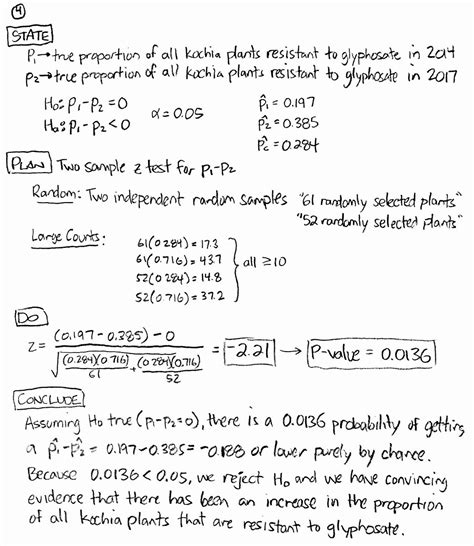 ④
STATE
P₁→true proportion of all kochia plants resistant to glyphosate in 2014
P₂→true proportion of all kochia plants resistant to glyphosate in 2017
H₀: P₁-P₂=0
Hₐ: P₁-P₂<0
α=0.05
p̂₁ = 0.197
p̂₂ = 0.385
p̂c = 0.284
PLAN Two sample z test for P₁-P₂
Random: Two independent random samples "61 randomly selected plants"
"52 randomly selected plants"
Large Counts:
61(0.284)=17.3
61(0.716)=43.7
52(0.284)=14.8
52(0.716)=37.2
} all ≥10
DO
z = (0.197-0.385)-0 / √((0.284)(0.716)/61 + (0.284)(0.716)/52) = -2.21 → P-value = 0.0136
CONCLUDE
Assuming H₀ true (P₁-P₂=0), there is a 0.0136 probability of getting
a p̂₁-p̂₂ = 0.197-0.385=-0.188 or lower purely by chance.
Because 0.0136<0.05, we reject H₀ and we have convincing
evidence that there has been an increase in the proportion
of all kochia plants that are resistant to glyphosate.